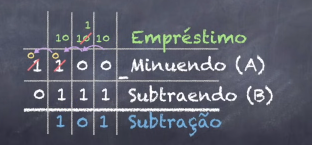 1
10 10 10 Empréstimo
0 0
1 1 0 0 _ Minuendo (A)
0 1 1 1 Subtraendo (B)
1 0 1 Subtração